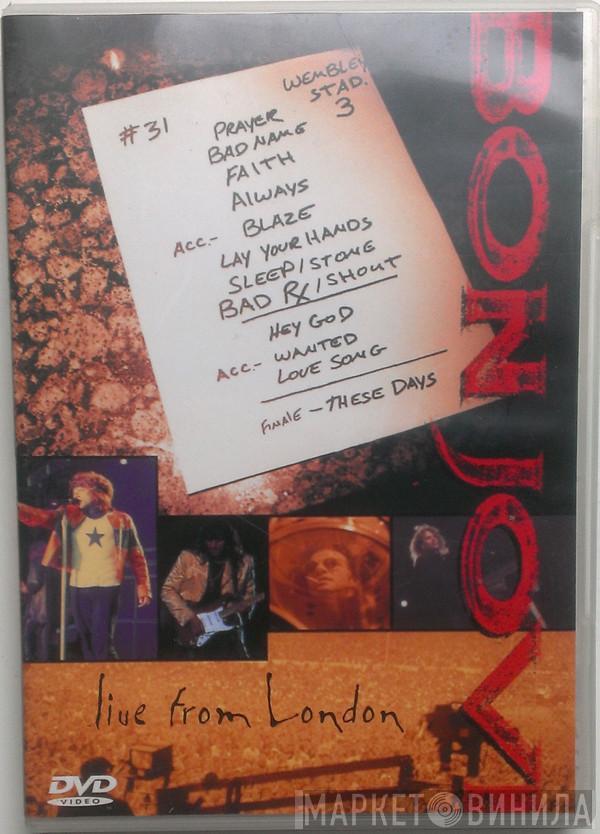 WEMBLEY
STAD.
3
#31
PRAYER
BAD NAME
FAITH
ALWAYS
ACC.- BLAZE
LAY YOUR HANDS
SLEEP/STONE
BAD RX/SHOUT
HEY GOD
ACC.- WANTED
LOVE SONG
FINALE - THESE DAYS
BON JOVI
live from London
DVD
VIDEO
МАРКЕТ ВИНИЛА